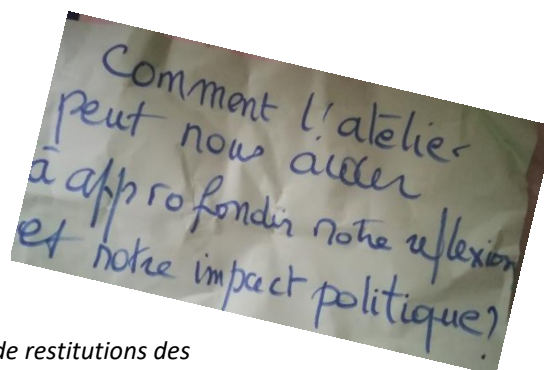 Comment l'atelier
peut nous aider
à approfondir notre reflexion
et notre impact politique?
de restitutions des